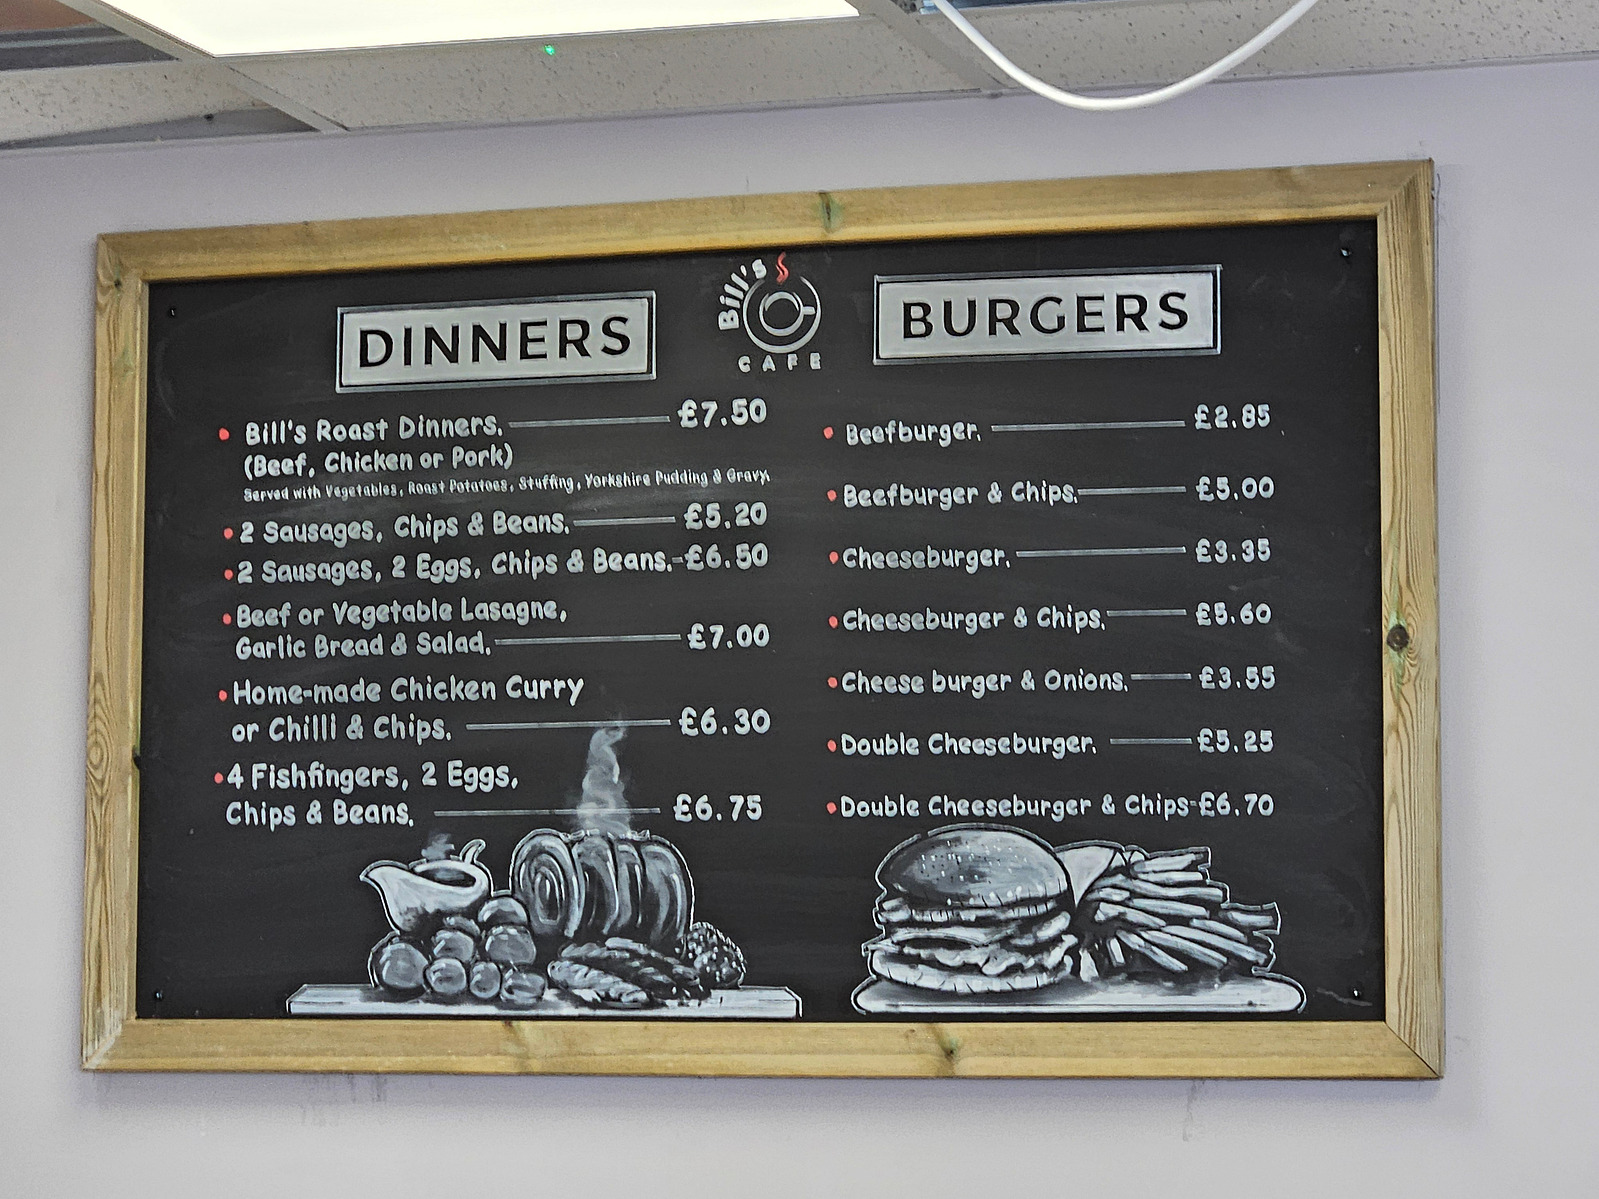 Bill's
CAFE
DINNERS
Bill's Roast Dinners. £7.50
(Beef, Chicken or Pork)
Served with Vegetables, Roast Potatoes, Stuffing, Yorkshire Pudding & Gravy.
2 Sausages, Chips & Beans. £5.20
2 Sausages, 2 Eggs, Chips & Beans. £6.50
Beef or Vegetable Lasagne,
Garlic Bread & Salad. £7.00
Home-made Chicken Curry
or Chilli & Chips. £6.30
4 Fishfingers, 2 Eggs,
Chips & Beans. £6.75
BURGERS
Beefburger. £2.85
Beefburger & Chips. £5.00
Cheeseburger. £3.35
Cheeseburger & Chips. £5.60
Cheese burger & Onions. £3.55
Double Cheeseburger. £5.25
Double Cheeseburger & Chips £6.70